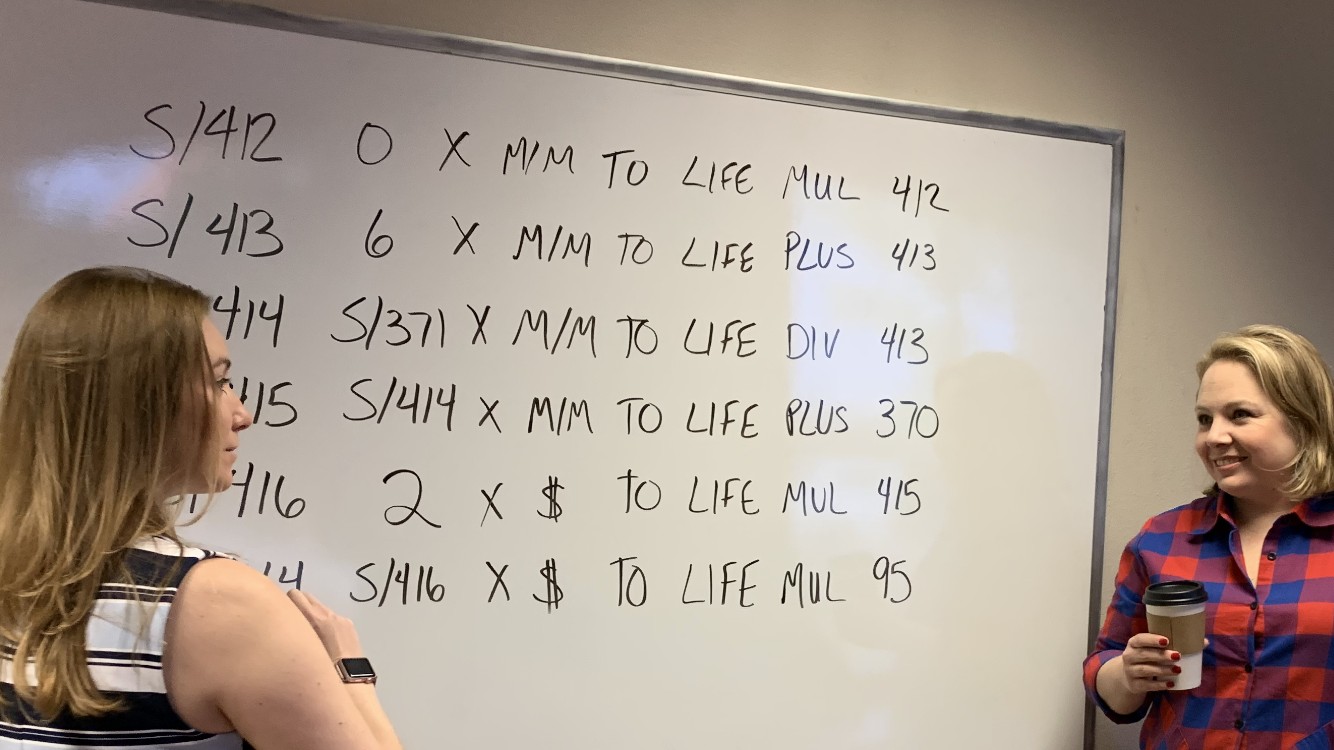 S/412 0 X M/M TO LIFE MUL 412
S/413 6 X M/M TO LIFE PLUS 413
414 S/371 X M/M TO LIFE DIV 413
415 S/414 X M/M TO LIFE PLUS 370
416 2 X $ TO LIFE MUL 415
14 S/416 X $ TO LIFE MUL 95